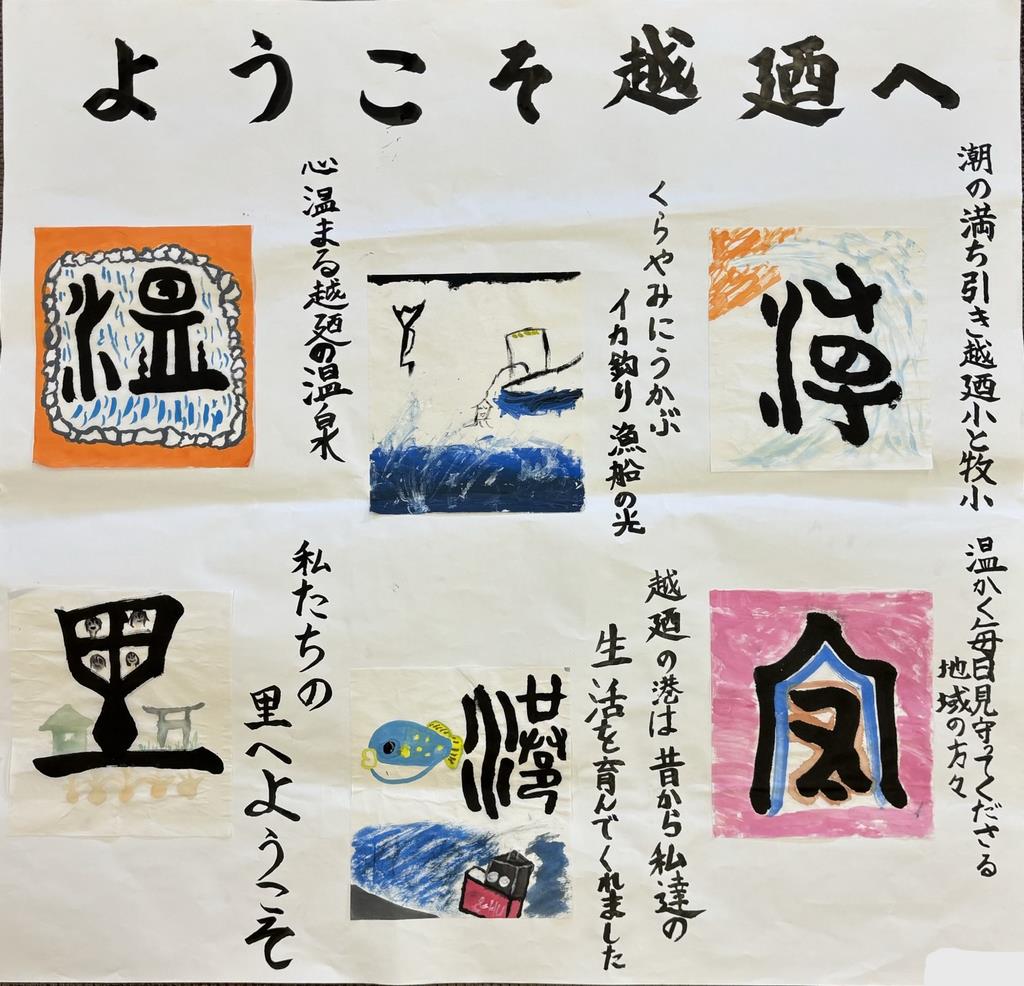 ようこそ越廼へ
潮の満ち引き越廼小と牧小
くらやみにうかぶ
イカ釣り漁船の光
心温まる越廼の温泉
温
温かく毎日見守ってくださる
地域の方々
越廼の港は昔から私達の
生活を育んでくれました
私たちの
里へようこそ
里